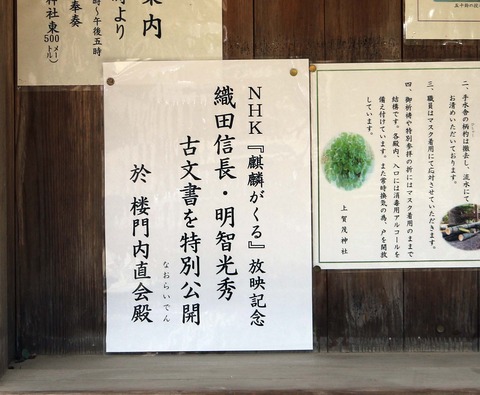 NHK『麒麟がくる』放映記念
織田信長・明智光秀
古文書を特別公開
於 楼門内直会殿
なおらいでん
二、手水舎の柄杓は撤去し、流水にて
お清めいただいております。
三、職員はマスク着用にて応対させていただきます。
四、御祈祷や特別参拝の折にはマスク着用のままで
結構です。各殿内、入口には消毒用アルコールを
備え付けています。また常時換気の為、戸を開放
しています。
上賀茂神社
案内
時より
時～午後五時
奉奏
神社東500メートル